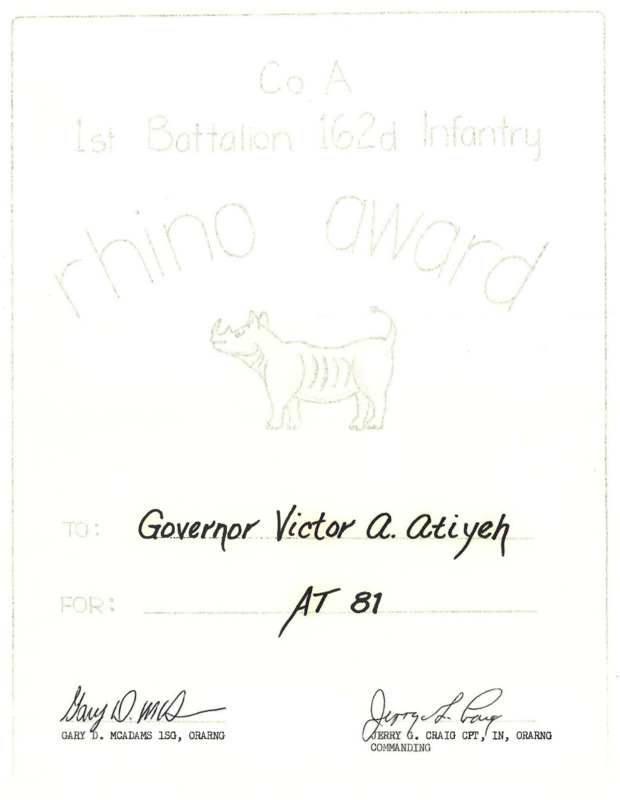 Co A
1st Battalion 162d Infantry
rhino award
TO: Governor Victor A. Atiyeh
FOR: AT 81
Gary D. McA
GARY D. MCADAMS 1SG, ORARNG
Jerry G. Craig
JERRY G. CRAIG CPT, IN, ORARNG
COMMANDING